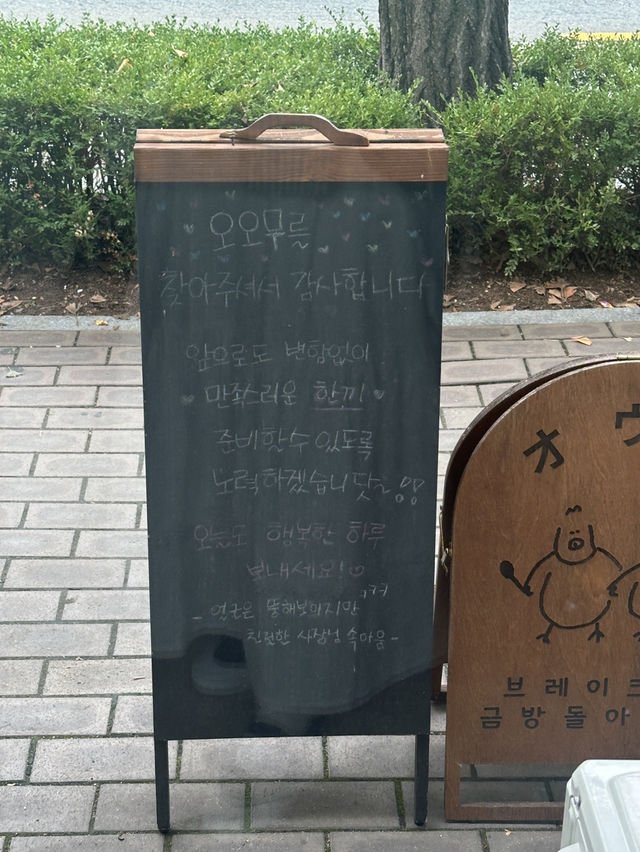 오오무를
찾아주셔서 감사합니다
앞으로도 변함없이
만족스러운 한끼
준비할수있도록
노력하겠습니닷~!!
오늘도 행복한 하루
보내세요!♡
친절한 사장님 속마음-
오
브레이크
금방돌아